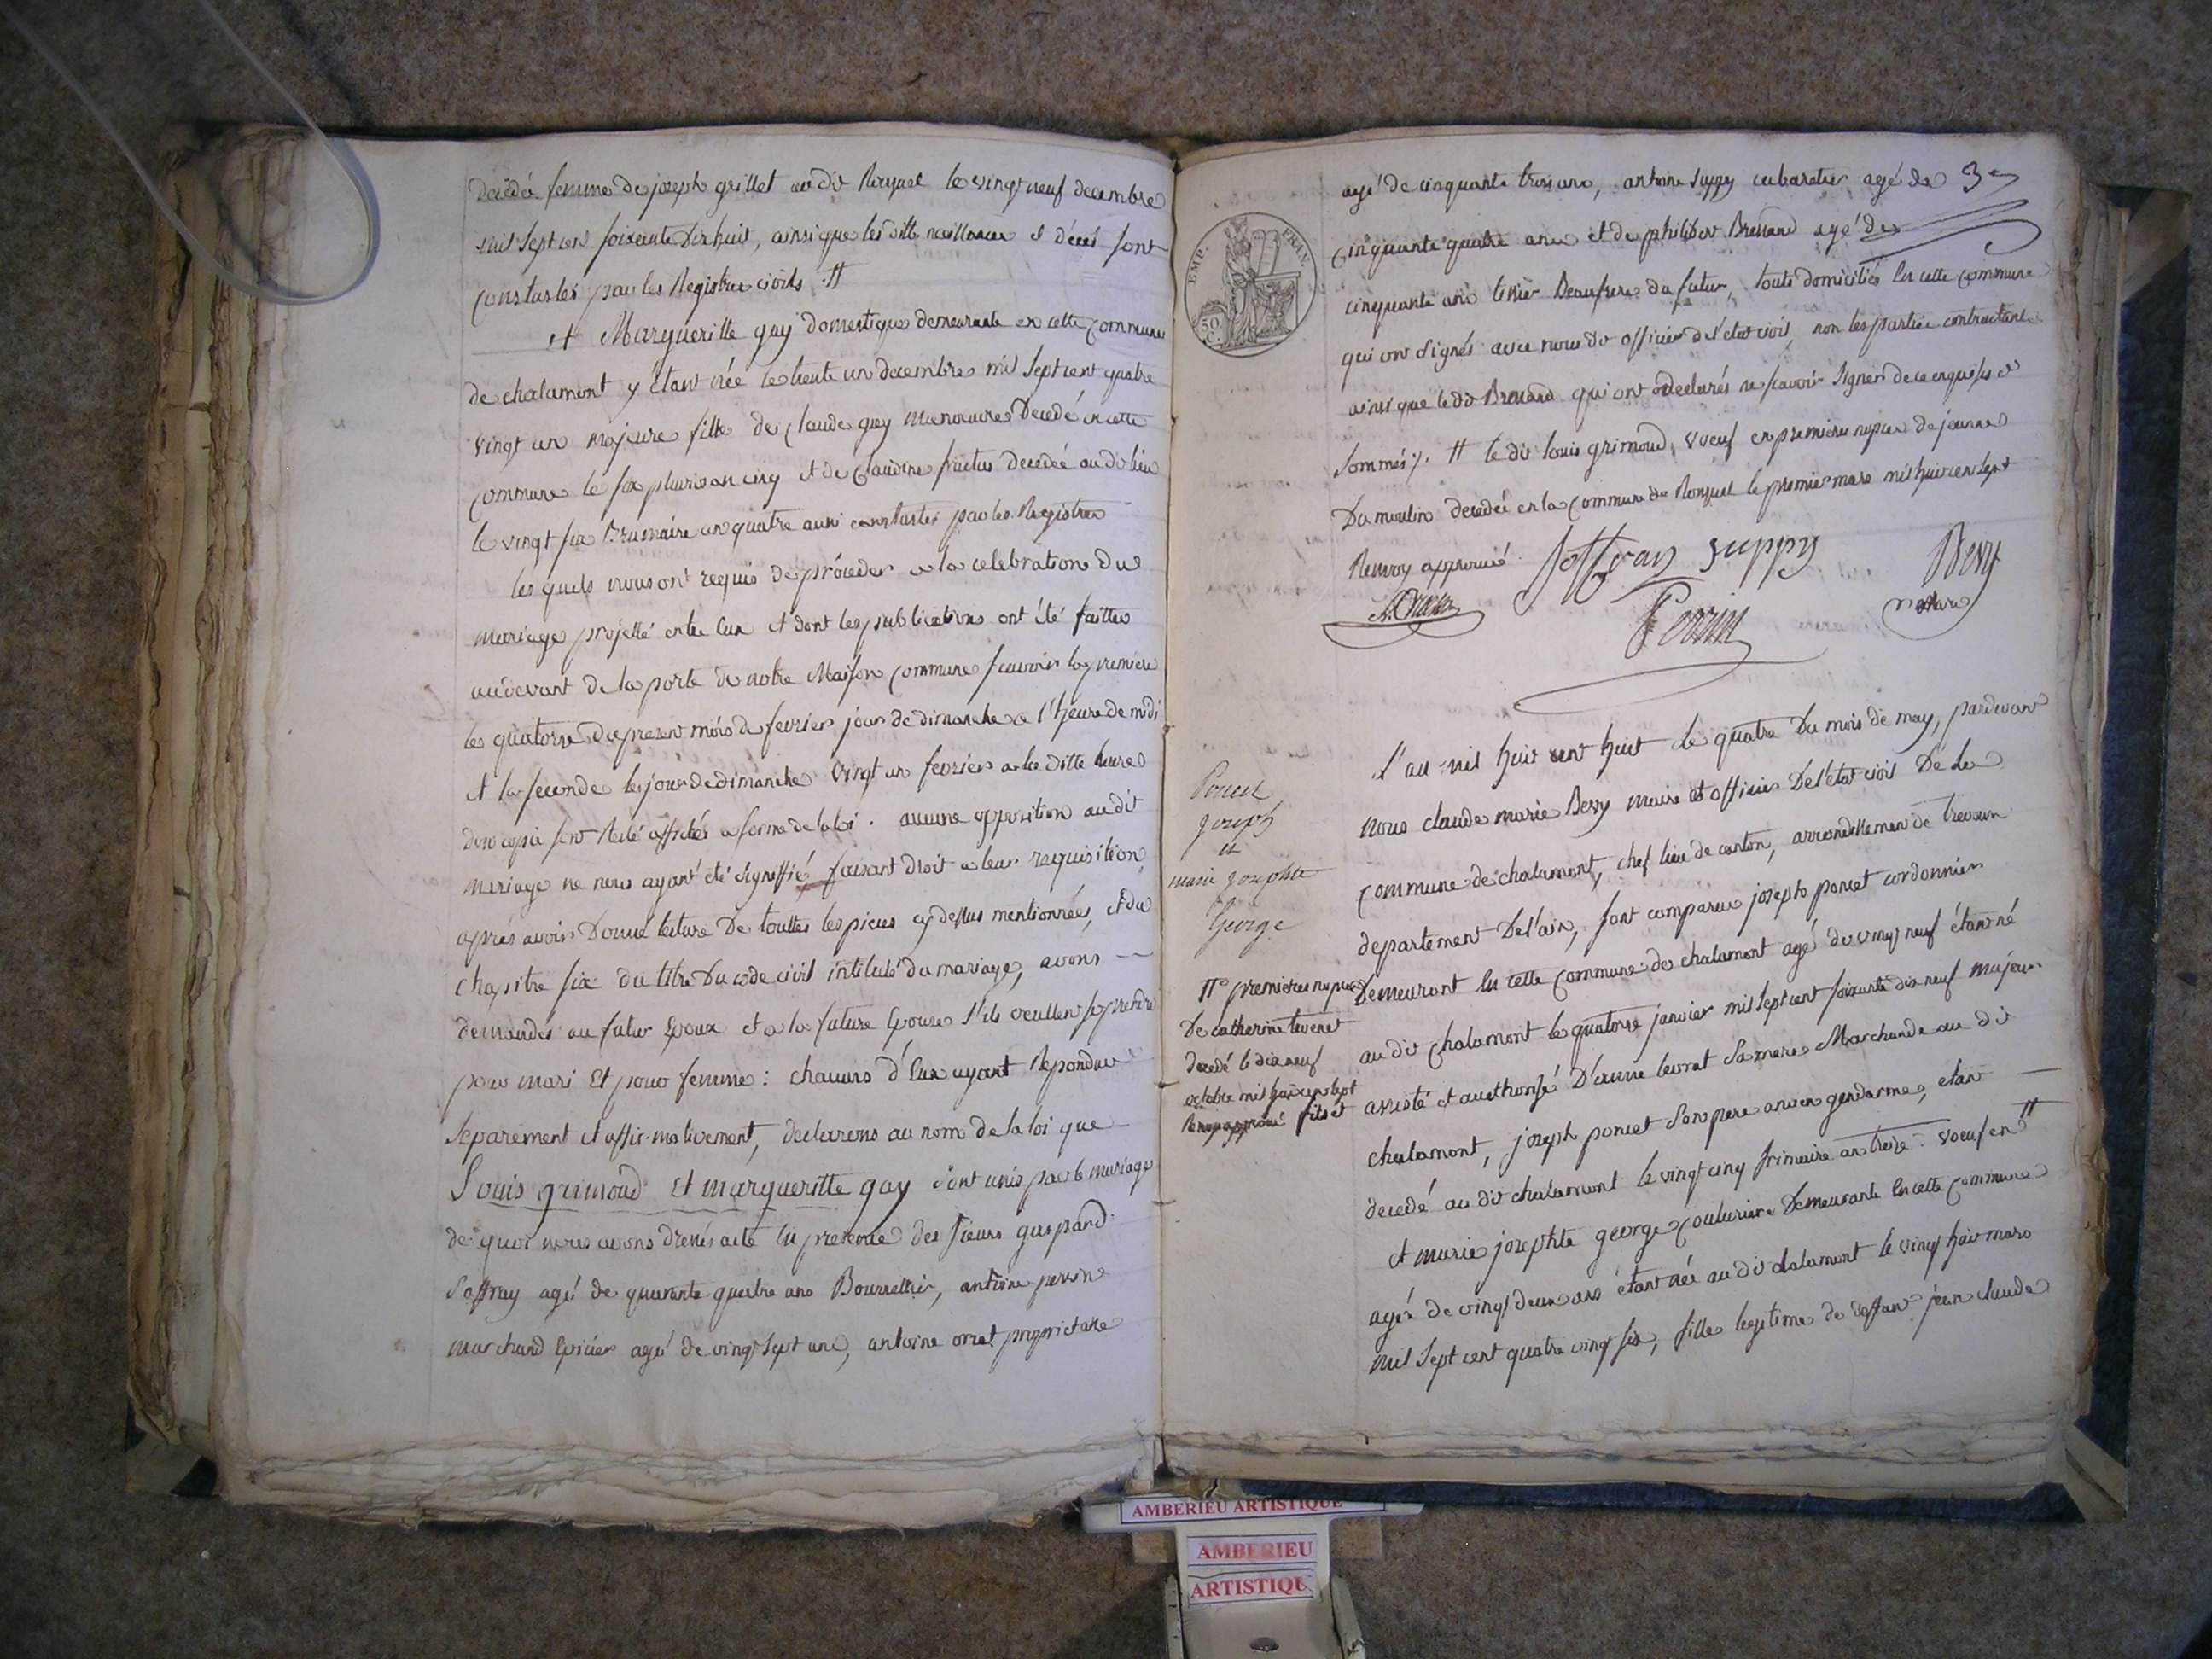 decedée femme de joseph grillet au dit Ronzuel le vingt neuf decembre
mil sept cent soixante Dix huit, ainsi que les dittes naissances et décès sont
constastés par les Registres civils .//
et Margueritte gay domestique demeurante en cette commune
de chalamont y étant née le trente un decembre mil sept cent quatre
vingt un majeure fille de Claude gay manoeuvre Decedé en cette
commune le six pluviose an cinq et de Claudine decedée au dit lieu
le vingt six Brumaire an quatre aussi constastés par les Registres
les quels nous ont requis de procéder a la celebration du
mariage projetté entre eux et dont les publications ont été faittes
au devant de la porte de notre Maison commune scavoir la premiere
le quatorze du present mois de fevrier jour de dimanche a l'heure de midi
et la seconde le jour de dimanche vingt un fevrier a la ditte heure
dont copie sont Resté affichés a forme de la loi . aucune opposition au dit
mariage ne nous ayant été signiffié faisant droit a leur requisition,
après avoir Donné lecture De touttes les pieces cy dessus mentionnées, et du
chapitre six du titre Du code civil intitulé du mariage, avons —
demandés au futur Epoux et a la future Epouse s'ils veullent se prendre
pour mari Et pour femme : chacuns d'Eux ayant Repondu
separement et affirmativement, declarons au nom de la loi que
Louis grimoud Et margueritte gay sont unis par le mariage
de quoi nous avons dressés acte en presence des sieurs gaspard
Joffray agé de quarante quatre ans Bourrellier, antoine perrin
marchand Epicier agé de vingt sept ans, antoine orset proprietaire
agé de cinquante trois ans, antoine suppy cabaretier agé de
3
cinquante quatre ans et de philibert Bressand agé de
cinquante ans beaufrere du futur, touts domiciliés en cette commune
qui ont signés avec nous dit officier de l'etat civil, non les parties contractantes
ainsi que le dit Bressand qui ont declarés ne scavoir signer de ce enquis et
sommés ./. // le dit louis grimoud, voeuf en premiere nopces de jeanne
Du moulin decedée en la commune de Ronzuel le premier mars mil huit cent sept
Renvoy approuvé
Joffray suppy Bevy
Perrin maire
EMP. FRAN.
50 C.
Poncet
joseph
et
marie josephte
George
L'an mil huit cent huit le quatre Du mois de may, pardevant
nous claude marie Bevy maire et officier De l'etat civil De la
commune de chalamont, chef lieu de canton, arrondissement de trevoux
departement De l'ain, sont comparu joseph poncet cordonnier
Demeurant en cette commune de chalamont agé de vingt neuf étant né
au dit chalamont le quatorze janvier mil sept cent soixante dix neuf majeur
assisté et aucthorisé D'anne levrat sa mere Marchande au dit
chalamont, joseph poncet son pere ancien gendarme, etant —
decedé au dit chalamont le vingt cinq frimaire an treze . voeuf en //
et marie josephte george couturiere Demeurante en cette commune
agée de vingt deux ans étant née au dit chalamont le vingt huit mars
mil sept cent quatre vingt six, fille legitime de deffunt jean claude
// premieres nopces
De catherine tevenet
decedé le dix neuf
octobre mil huit cent sept
Renvoy approuvé fils et
AMBERIEU ARTISTIQUE
AMBERIEU
ARTISTIQU